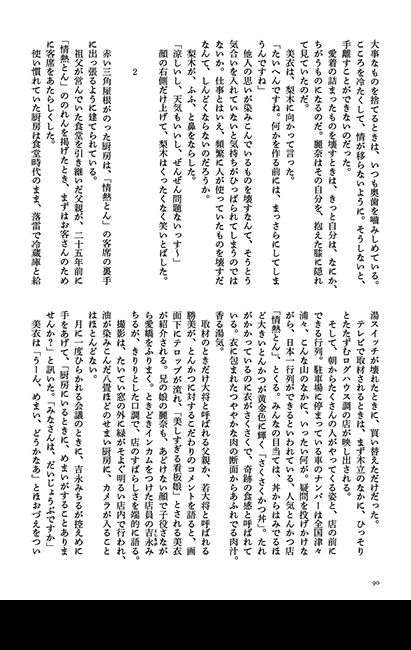 大事なものを捨てるときは、いつも奥歯を噛みしめている。
こころを冷たくして、情が移らないように。そうしないと、
手離すことができないのだった。
愛着の詰まったものを壊すときは、きっと自分は、なにか、
ちがうものになるのだ。麗奈はその自分を、抱えた膝に隠れ
て見ていたのだ。
美衣は、梨木に向かって言った。
「たいへんですね。何かを作る前には、まっさらにしてしま
うんですね」
他人の思いが染みこんでいるものを壊すなんて、そうとう
気合いを入れていないと気持ちがひっぱられてしまうのでは
ないか。仕事とはいえ、頻繁に人が使っていたものを壊すだ
なんて、しんどくならないのだろうか。
梨木が、ふふ、と鼻をならした。
「涼しいし、天気もいいし、ぜんぜん問題ないっす〜」
顔の右側だけ上げて、梨木はくったくなく笑いとばした。
2
赤い三角屋根がのった厨房は、「情熱とん」の客席の裏手
に出っ張るように建てられている。
祖父が営んでいた食堂を引き継いだ父親が、二十五年前に
「情熱とん」ののれんを掲げたとき、まずはお客さんのため
に客席をあたらしくした。
使い慣れていた厨房は食堂時代のまま、落雷で冷蔵庫と給
湯スイッチが壊れたときに、買い替えただけだった。
テレビで取材されるときは、まず木立のなかに、ひっそり
とたたずむログハウス調の店が映し出される。
そして、朝からたくさんの人がやってくる姿と、店の前に
できる行列。駐車場に停まっている車のナンバーは全国津々
浦々、こんな山のなかに、いったい何が。疑問を投げかけな
がら、日本一行列ができるといわれている、人気とんかつ店
「情熱とん」、とくる。みんなの目当ては、丼からはみでるほ
ど大きいとんかつが黄金色に輝く、「さくさくかつ丼」。たれ
がかかっているのに衣がさくさくで、奇跡の食感と呼ばれて
いる。衣に包まれたつややかな肉の断面からあふれでる肉汁。
香る湯気。
取材のときだけ大将と呼ばれる父親か、若大将と呼ばれる
勝美が、とんかつに対するこだわりのコメントを語ると、画
面下にテロップが流れ、「美しすぎる看板娘」とされる美衣
が紹介される。兄の娘の麗奈も、あどけない顔で子役さなが
ら愛嬌をふりまく。ときどきインカムをつけた店員の吉永み
ちるが、きりりとした口調で、店のすばらしさを端的に語る。
撮影は、たいてい窓の外に緑がそよぐ明るい店内で行われ、
油が染みこんだ八畳ほどのせまい厨房に、カメラが入ること
はほとんどない。
月に一度ひらかれる会調のときに、吉永みちるが控えめに
手をあげて、「厨房にいるときに、めまいがすることありま
せんか？」と訊いた。「みなさんは、だいじょうぶですか」
美衣は「うーん、めまい、どうかなあ」とほおづえをつい
90